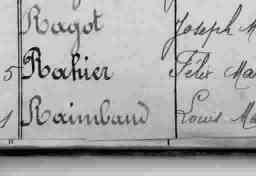 Ragot Joseph M
5 Rahier Félix Ma
1 Raimbaud Louis Ma